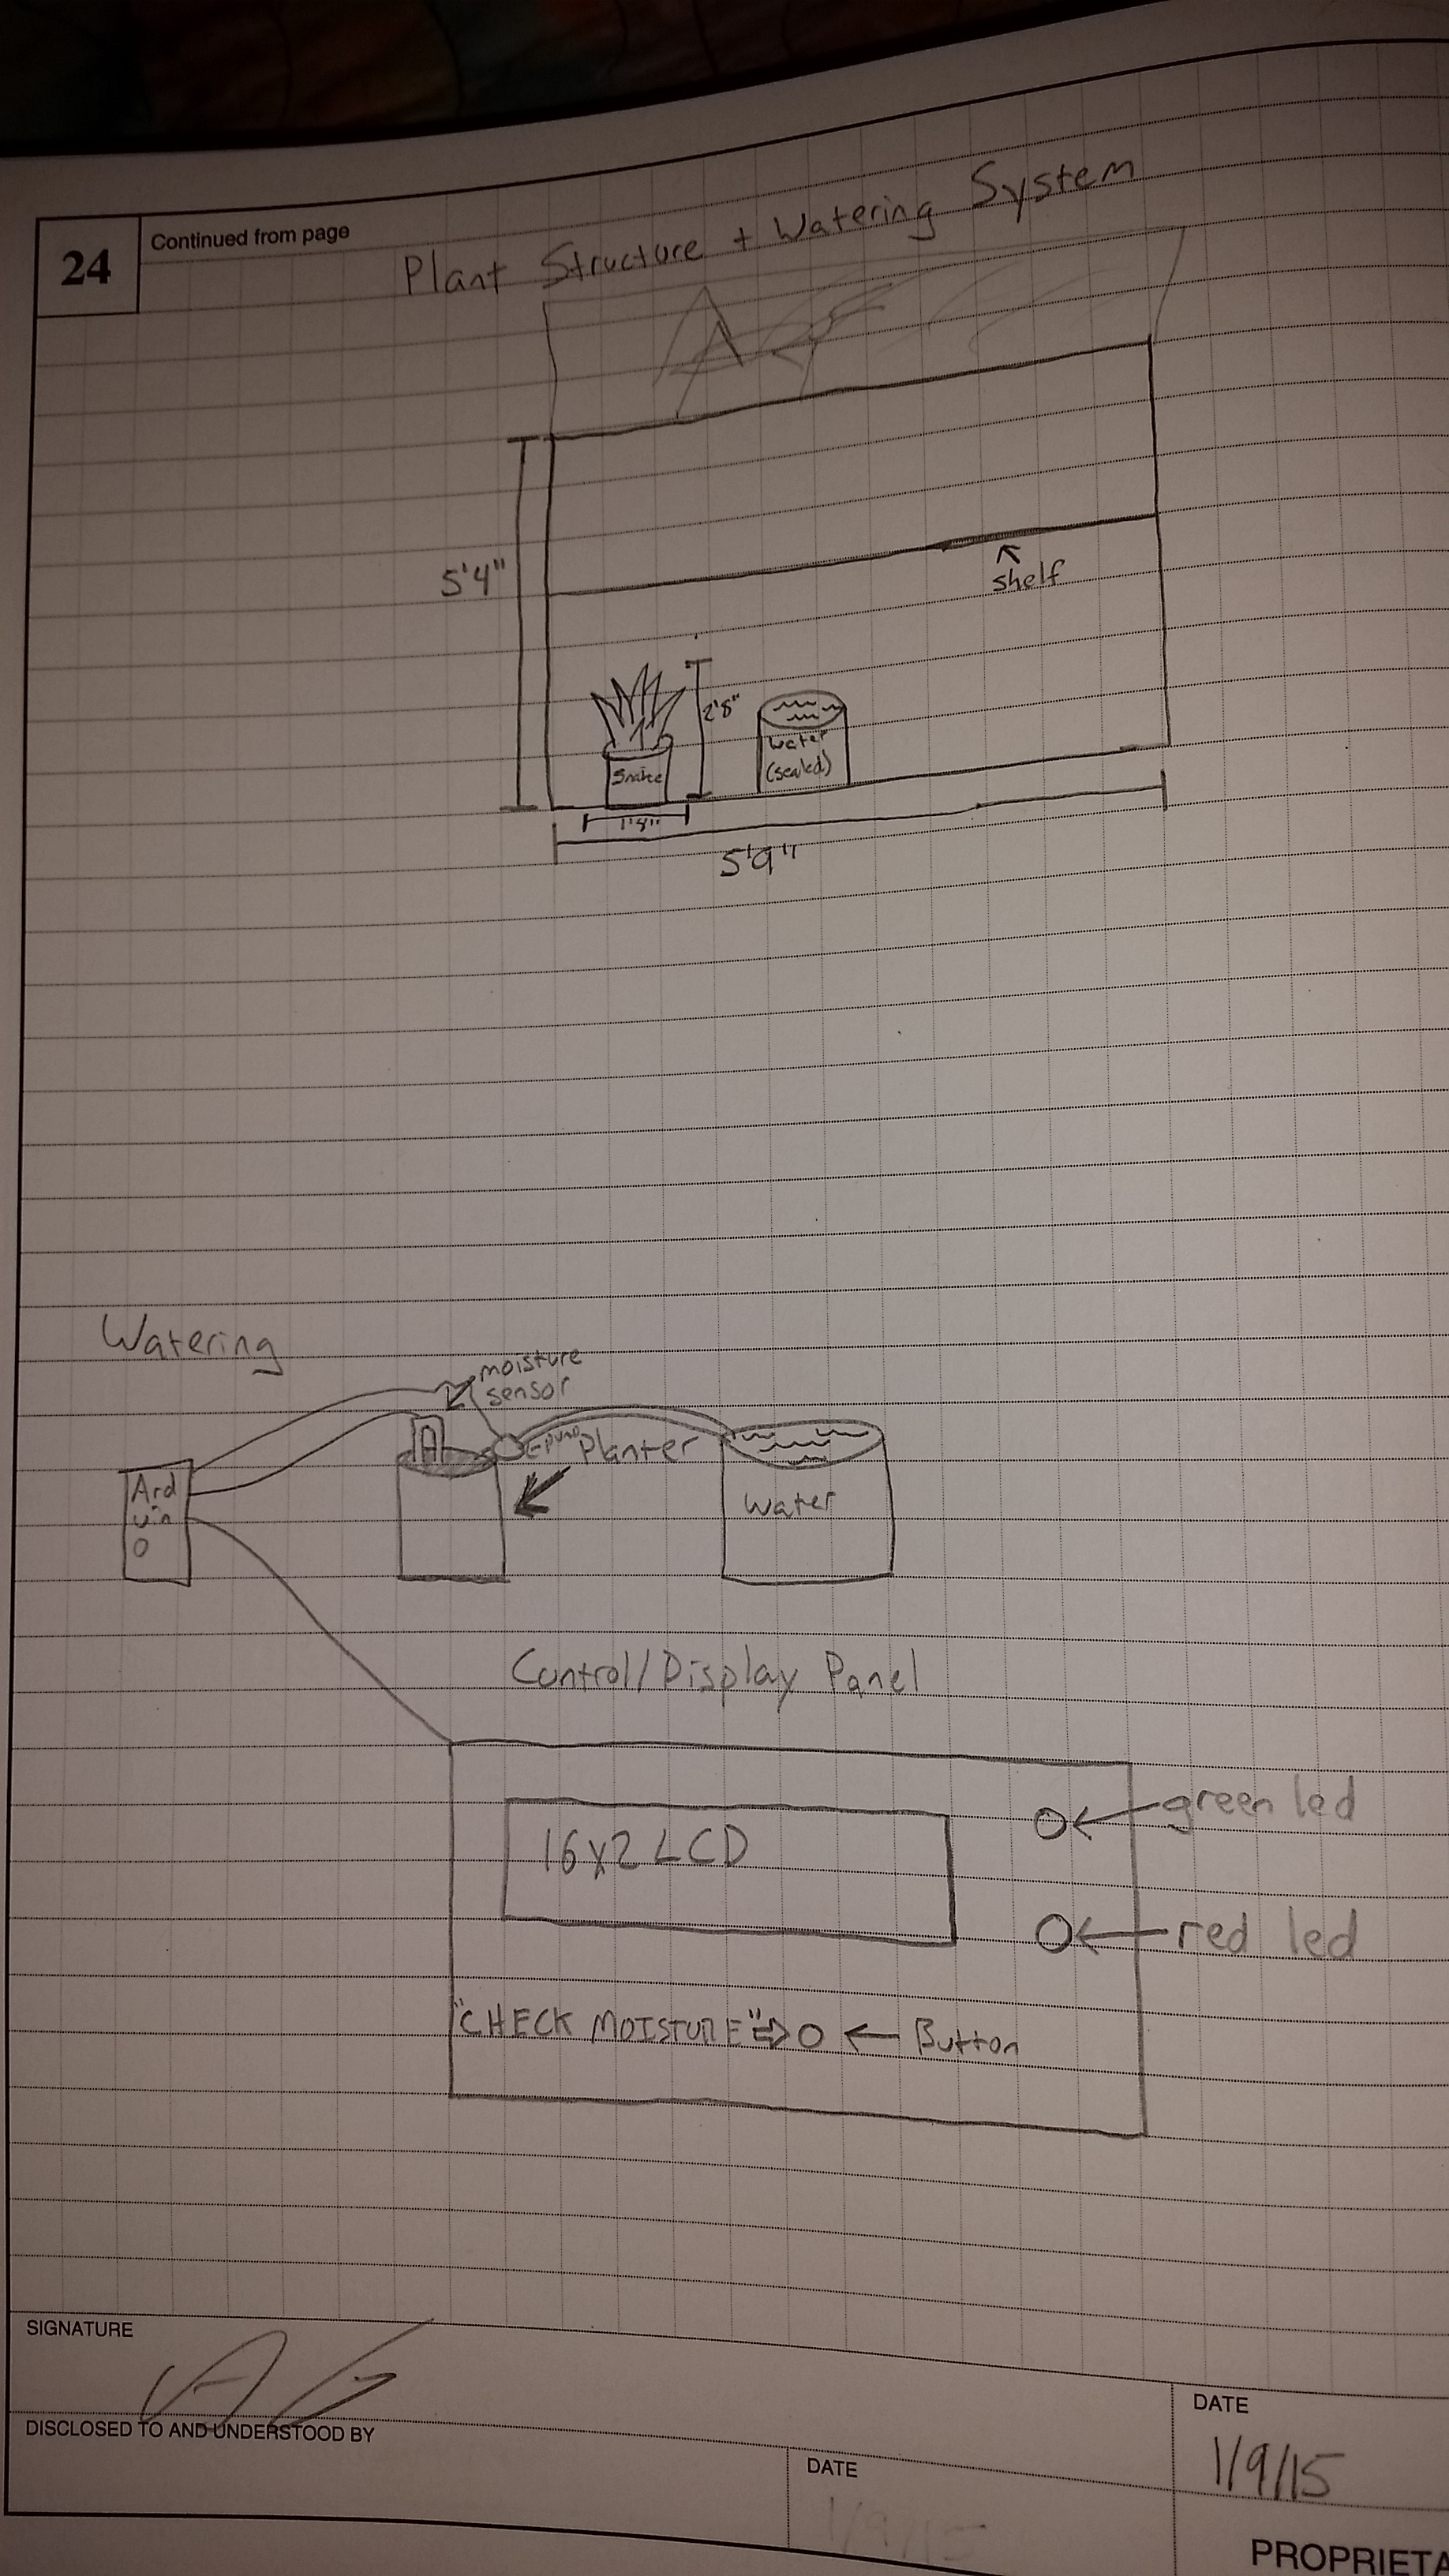 24
Continued from page
Plant Structure + Watering System
5'4"
shelf
2'8"
water
(sealed)
Snake
1'8"
5'9"
Watering
moisture
sensor
pump
Planter
Ard
uin
o
Water
Control/Display Panel
16x2 LCD
green led
red led
"CHECK MOISTURE" ⇒ ← Button
SIGNATURE
DISCLOSED TO AND UNDERSTOOD BY
DATE
1/9/15
DATE
1/9/15
PROPRIETA